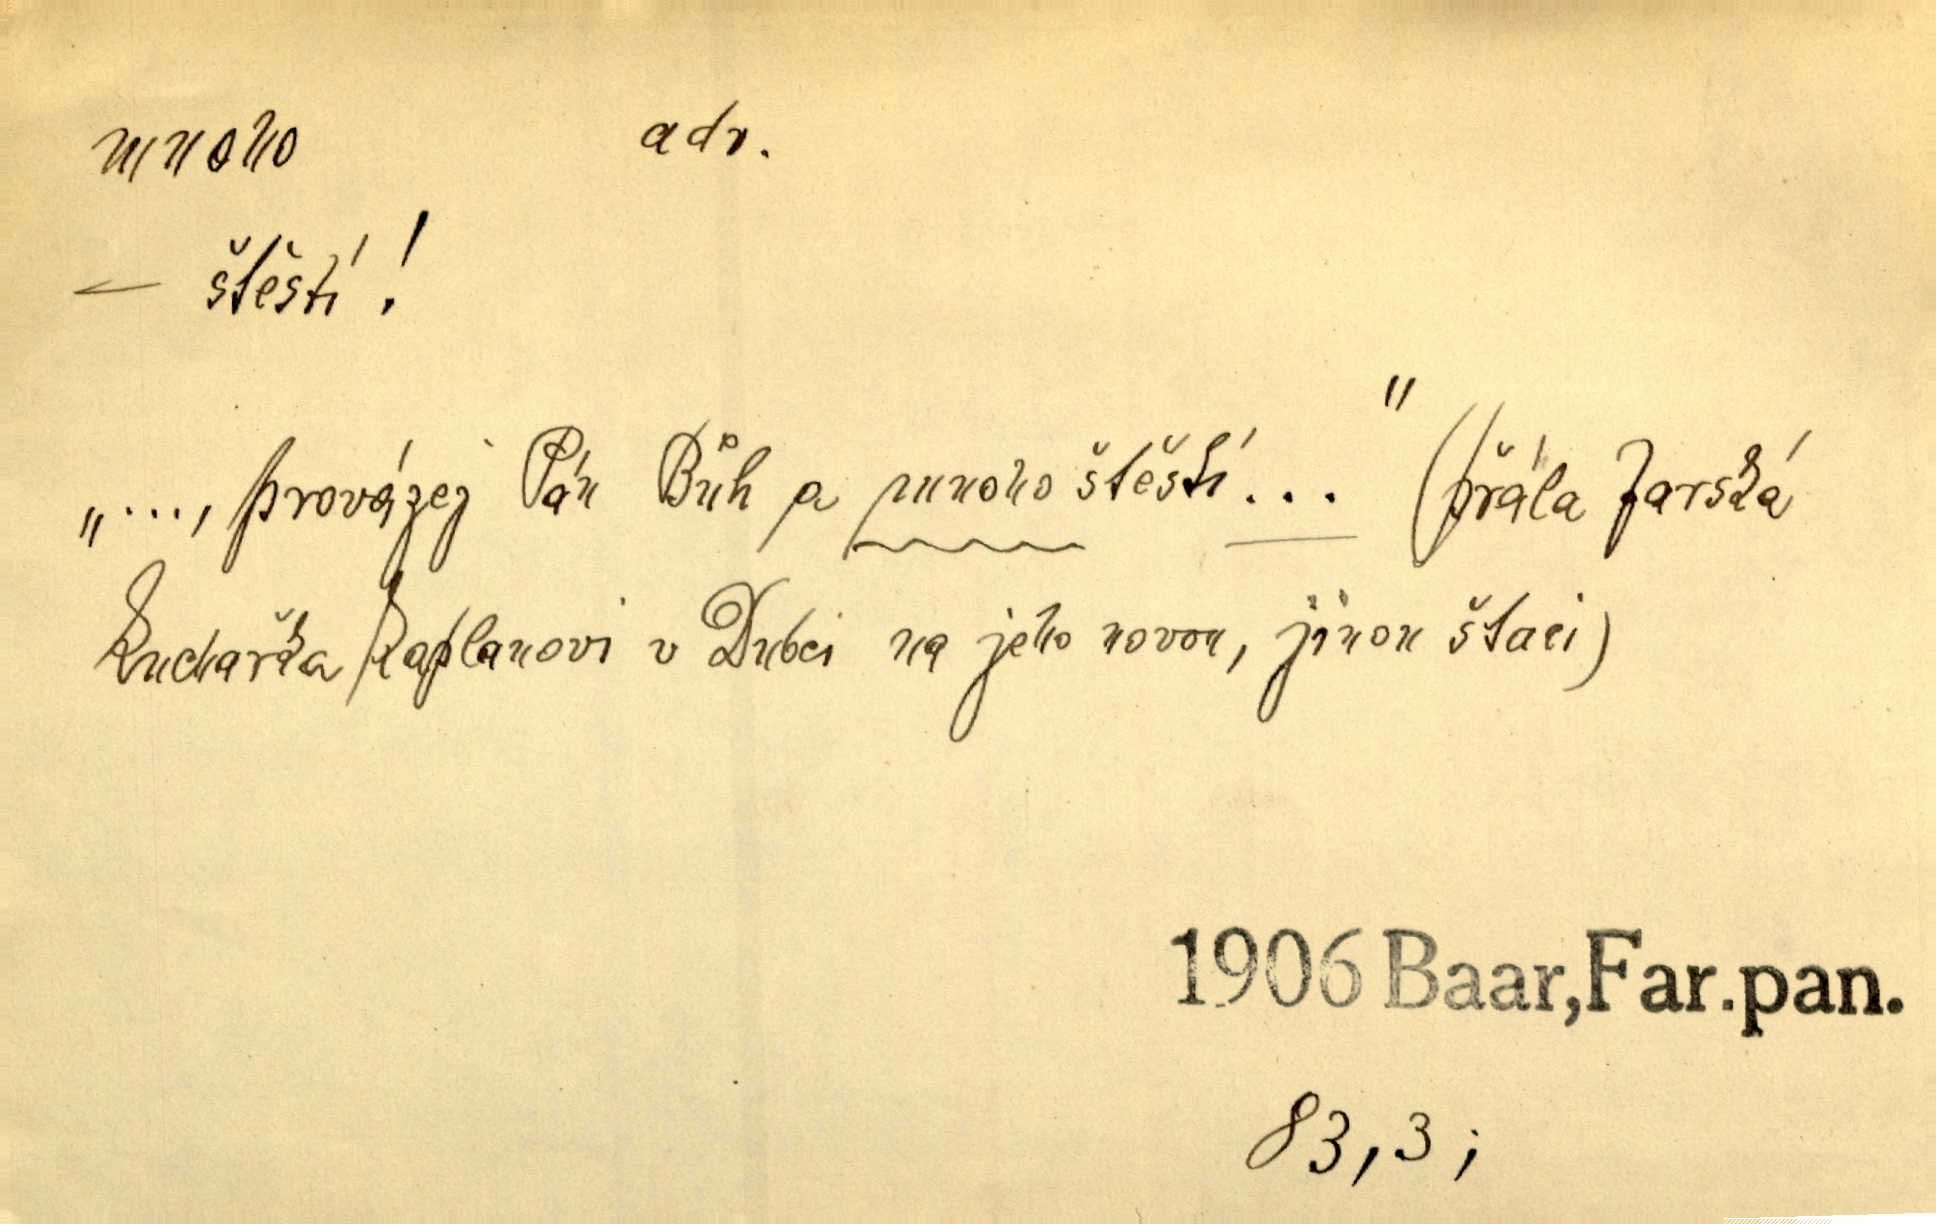 mnoho adv.
— štěstí!
„..., provázej Pán Bůh a mnoho štěstí..." (přála farská
kuchařka kaplanovi v Dubci na jeho novou, jinou štaci)
1906 Baar, Far. pan.
83,3;